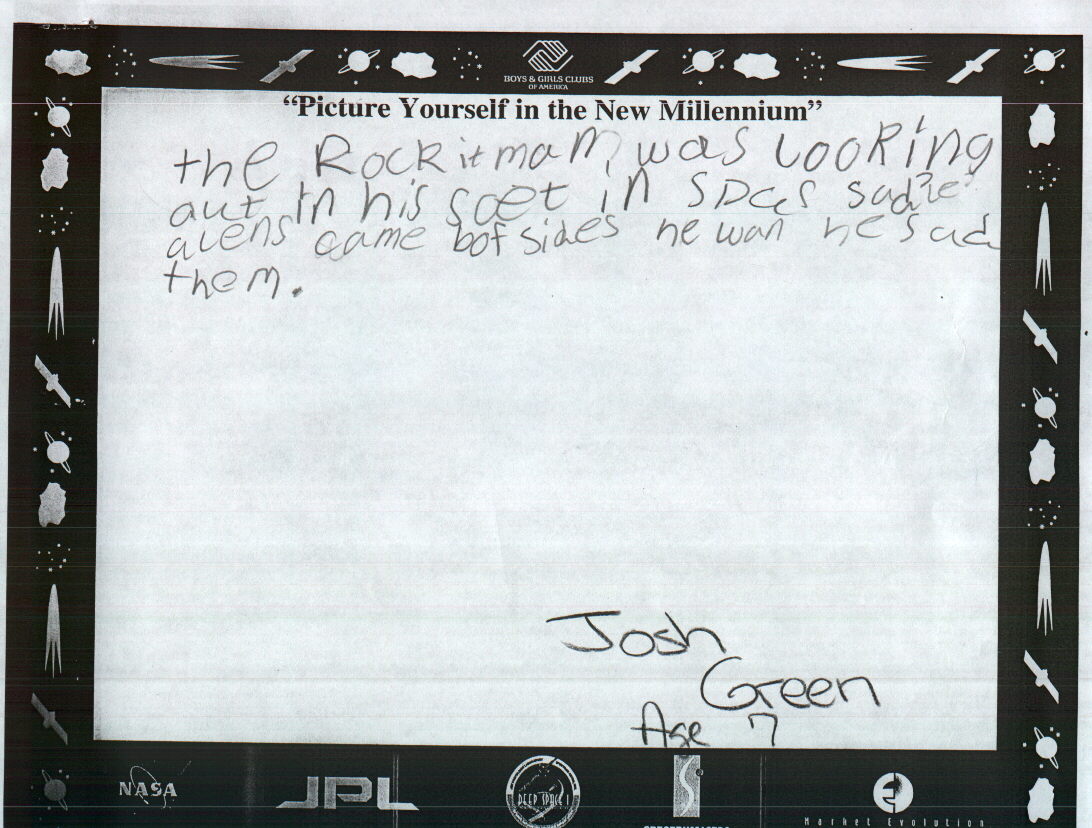 BOYS & GIRLS CLUBS
OF AMERICA
"Picture Yourself in the New Millennium"
the Rockitman was looking
aut in his soet in spces
alens came bof sides he wan he
them.
Josh
Green
Age 7
NASA
JPL
DEEP SPACE 1
Market Evolution